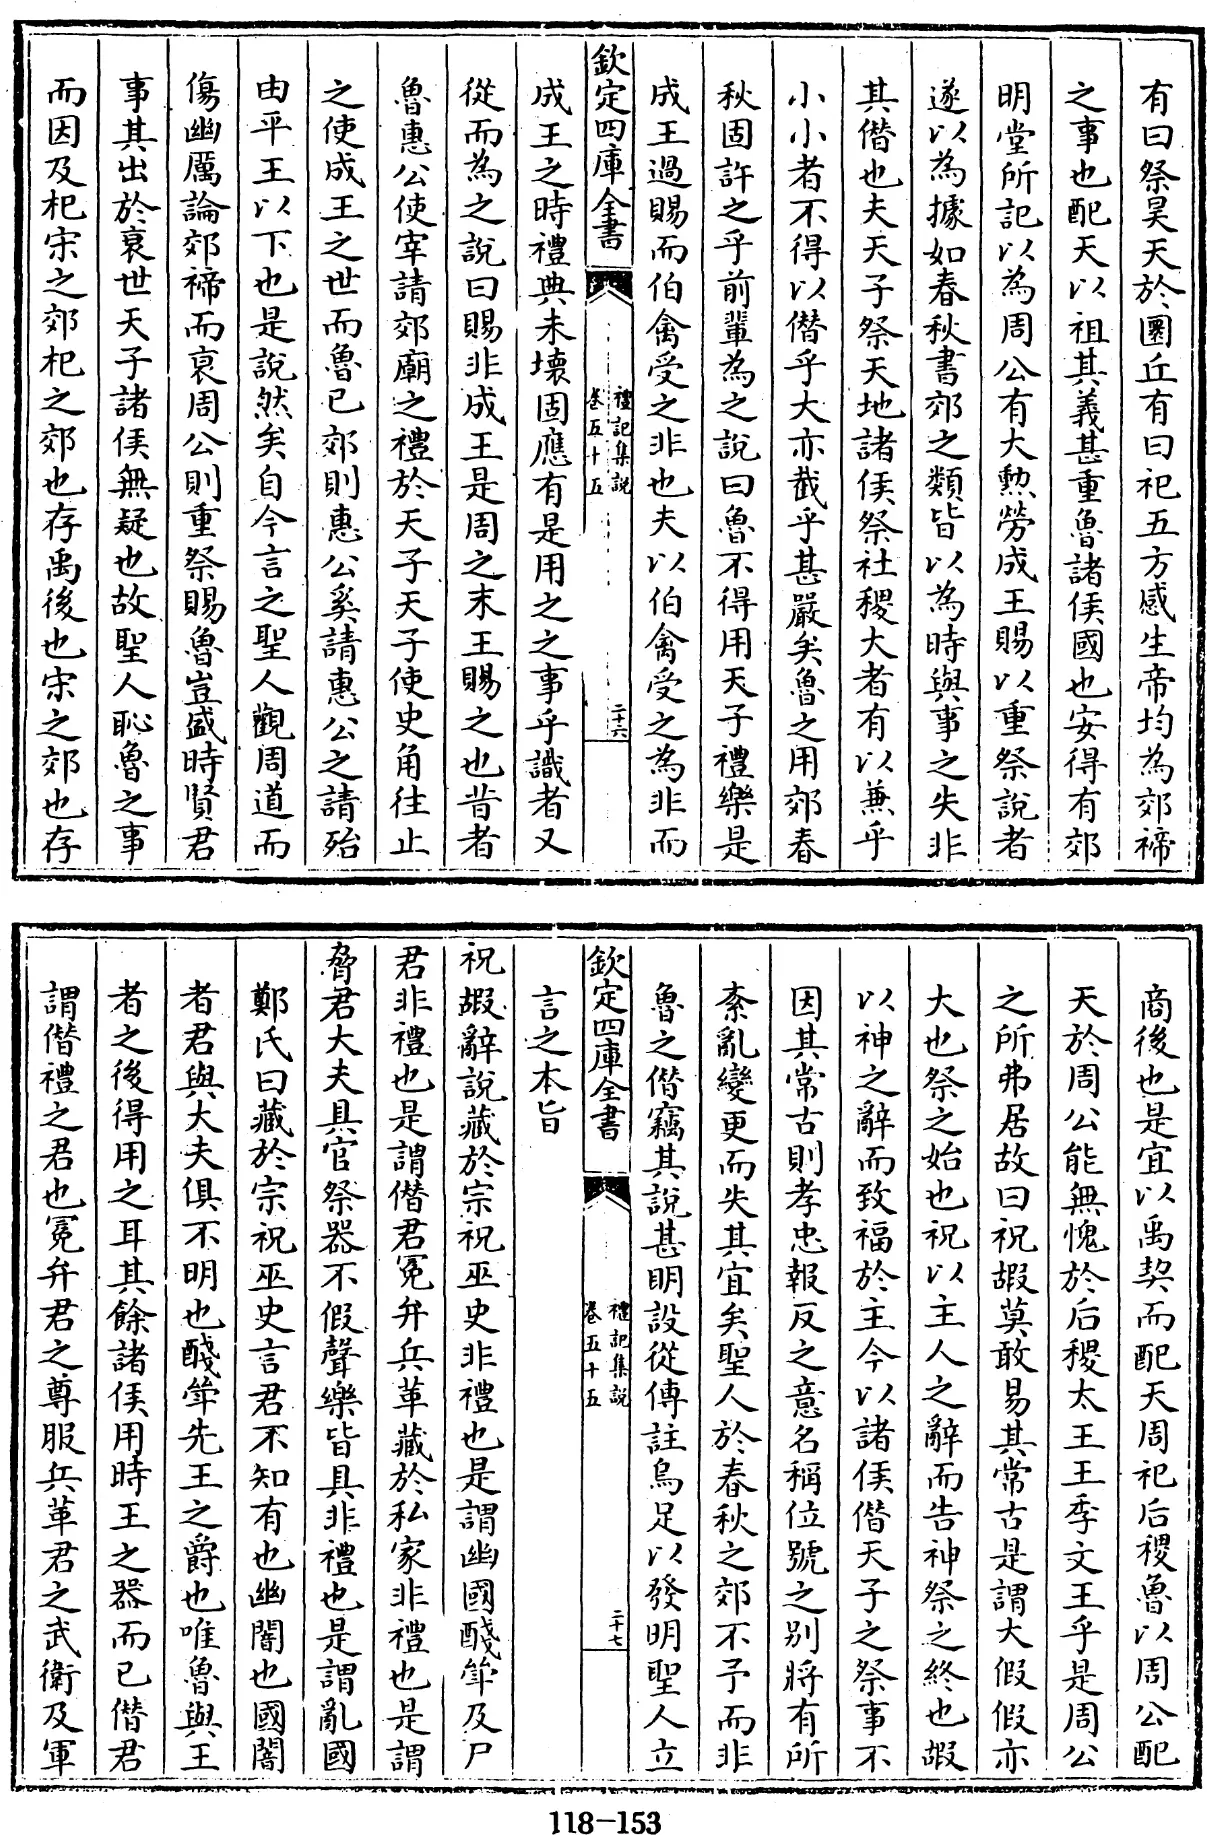 有曰祭昊天於圜丘有曰祀五方感生帝均為郊禘
之事也配天以祖其義甚重魯諸侯國也安得有郊
明堂所記以為周公有大勲勞成王賜以重祭說者
遂以為據如春秋書郊之類皆以為時與事之失非
其僭也夫天子祭天地諸侯祭社稷大者有以兼乎
小小者不得以僭乎大亦截乎甚嚴矣魯之用郊春
秋固許之乎前輩為之說曰魯不得用天子禮樂是
成王過賜而伯禽受之非也夫以伯禽受之為非而
欽定四庫全書
禮記集說
卷五十五
二十六
成王之時禮典未壞固應有是用之之事乎識者又
從而為之說曰賜非成王是周之末王賜之也昔者
魯惠公使宰請郊廟之禮於天子天子使史角往止
之使成王之世而魯已郊則惠公奚請惠公之請殆
由平王以下也是說然矣自今言之聖人觀周道而
傷幽厲論郊禘而哀周公則重祭賜魯豈盛時賢君
事其出於衰世天子諸侯無疑也故聖人恥魯之事
而因及杞宋之郊杞之郊也存禹後也宋之郊也存
商後也是宜以禹契而配天周祀后稷魯以周公配
天於周公能無愧於后稷太王王季文王乎是周公
之所弗居故曰祝嘏莫敢易其常古是謂大假假亦
大也祭之始也祝以主人之辭而告神祭之終也嘏
以神之辭而致福於主今以諸侯僭天子之祭事不
因其常古則孝忠報反之意名稱位號之别將有所
紊亂變更而失其宜矣聖人於春秋之郊不予而非
魯之僭竊其說甚明設從傳註烏足以發明聖人立
欽定四庫全書
禮記集說
卷五十五
二十七
言之本旨
祝嘏辭說藏於宗祝巫史非禮也是謂幽國醆斝及尸
君非禮也是謂僭君冕弁兵革藏於私家非禮也是謂
脅君大夫具官祭器不假聲樂皆具非禮也是謂亂國
鄭氏曰藏於宗祝巫史言君不知有也幽闇也國闇
者君與大夫俱不明也醆斝先王之爵也唯魯與王
者之後得用之耳其餘諸侯用時王之器而已僭君
謂僭禮之君也冕弁君之尊服兵革君之武衛及軍
118-153